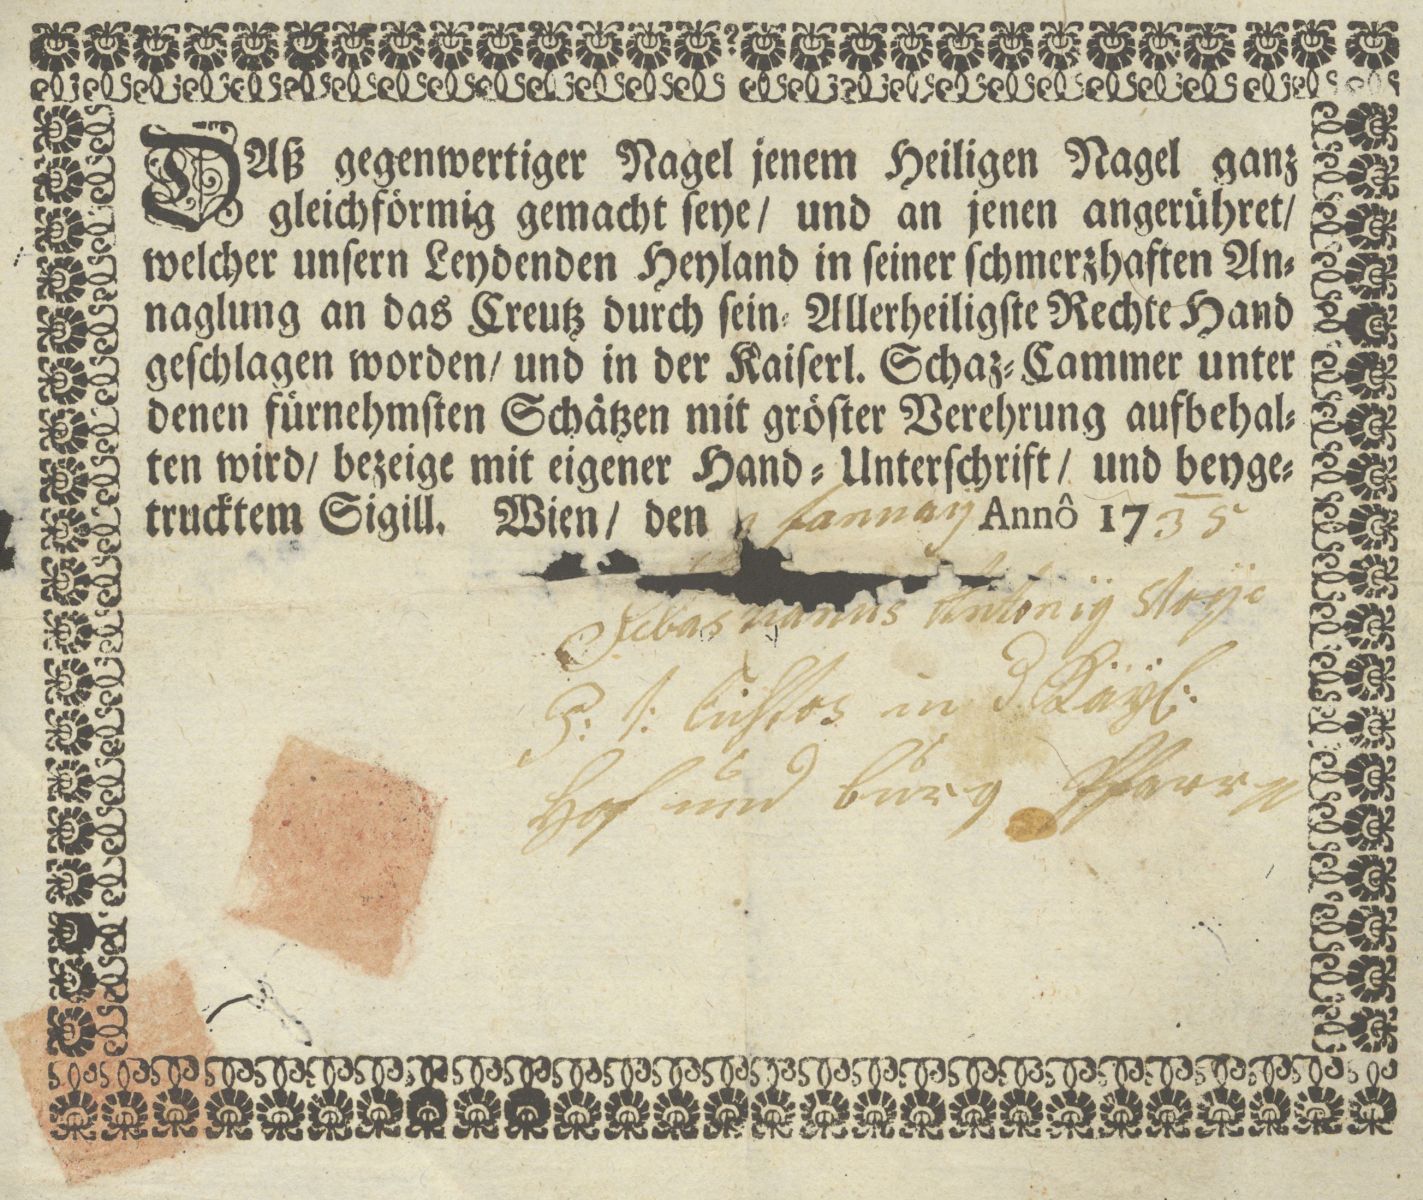 DAß gegenwertiger Nagel jenem Heiligen Nagel ganz
gleichförmig gemacht seye/ und an jenen angerühret/
welcher unsern Leydenden Heyland in seiner schmerzhaften An-
naglung an das Creutz durch sein- Allerheiligste Rechte Hand
geschlagen worden/ und in der Kaiserl. Schaz-Cammer unter
denen fürnehmsten Schätzen mit gröster Verehrung aufbehal-
ten wird/ bezeige mit eigener Hand-Unterschrift/ und beyge-
trucktem Sigill. Wien/ den Annô 1735
Sebastianus Antonÿ
Z: t: Custos in d Kaÿl:
Hof und burg Pfarr